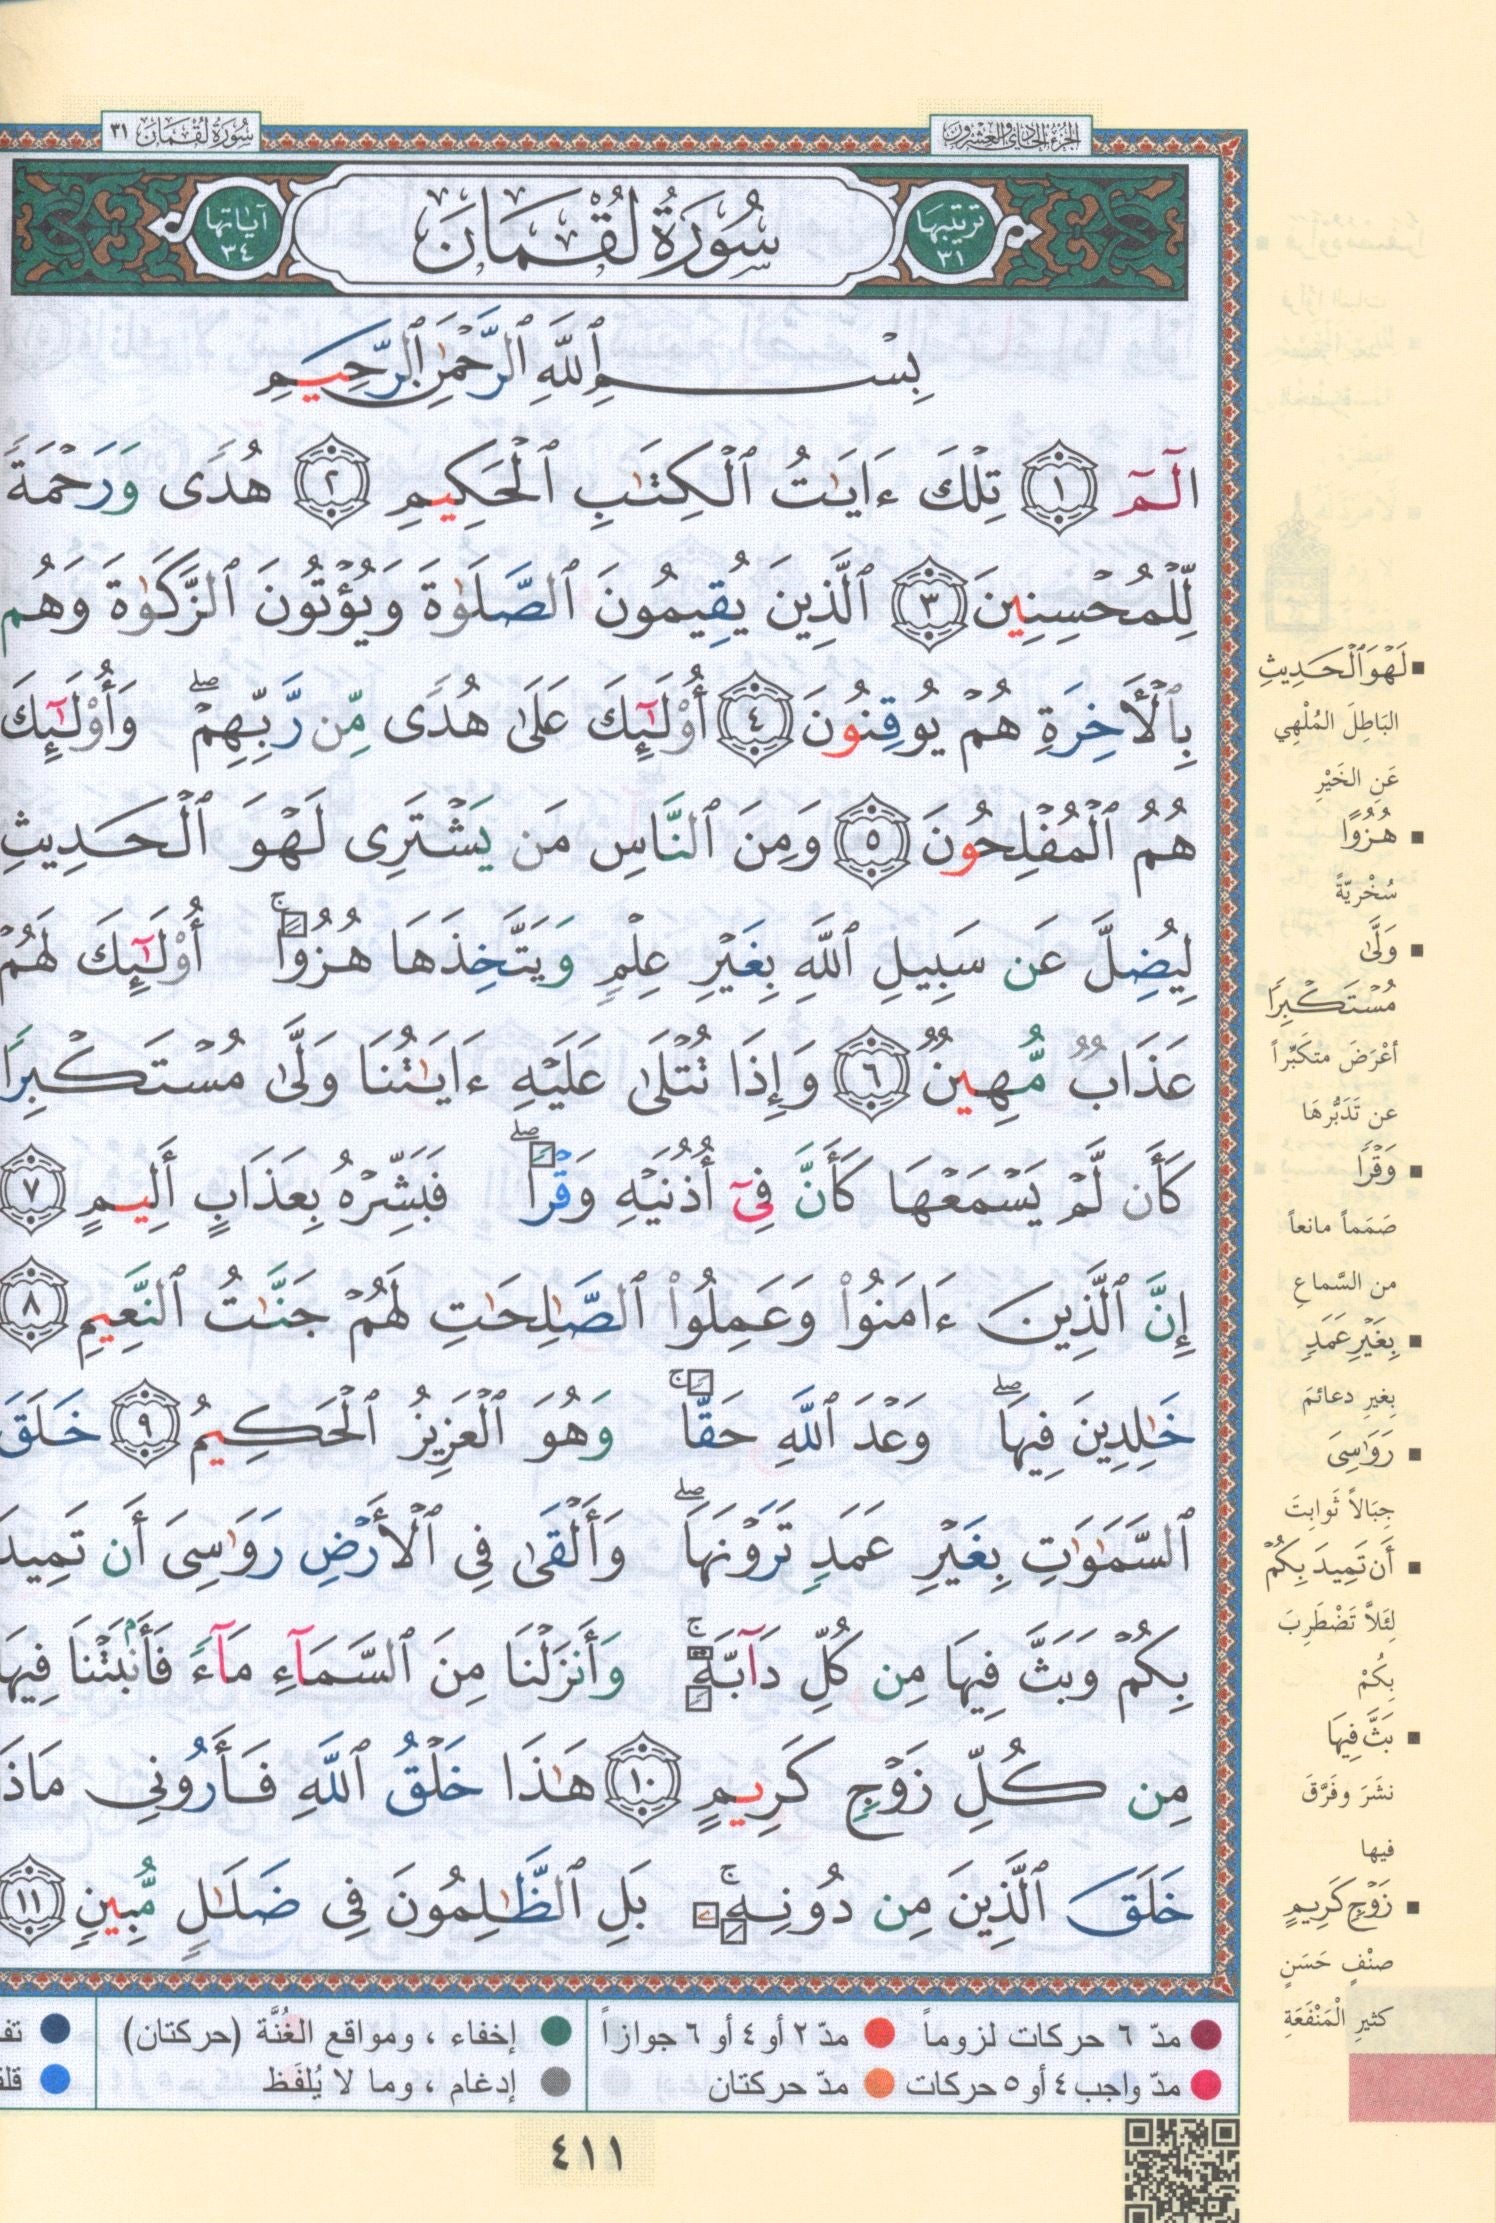 الجزء الحادي والعشرون
سورة لقمان ٣١
ترتيبها ٣١
سُورَةُ لُقْمَانَ
آياتها ٣٤
بِسْمِ ٱللَّهِ ٱلرَّحْمَٰنِ ٱلرَّحِيمِ
الٓمٓ ١ تِلْكَ ءَايَٰتُ ٱلْكِتَٰبِ ٱلْحَكِيمِ ٢ هُدًى وَرَحْمَةً
لِّلْمُحْسِنِينَ ٣ ٱلَّذِينَ يُقِيمُونَ ٱلصَّلَوٰةَ وَيُؤْتُونَ ٱلزَّكَوٰةَ وَهُم
بِٱلْأَخِرَةِ هُمْ يُوقِنُونَ ٤ أُوْلَٰٓئِكَ عَلَىٰ هُدًى مِّن رَّبِّهِمْ ۖ وَأُوْلَٰٓئِكَ
هُمُ ٱلْمُفْلِحُونَ ٥ وَمِنَ ٱلنَّاسِ مَن يَشْتَرِى لَهْوَ ٱلْحَدِيثِ
لِيُضِلَّ عَن سَبِيلِ ٱللَّهِ بِغَيْرِ عِلْمٍ وَيَتَّخِذَهَا هُزُوًا ۚ أُوْلَٰٓئِكَ لَهُمْ
عَذَابٌ مُّهِينٌ ٦ وَإِذَا تُتْلَىٰ عَلَيْهِ ءَايَٰتُنَا وَلَّىٰ مُسْتَكْبِرًا
كَأَن لَّمْ يَسْمَعْهَا كَأَنَّ فِىٓ أُذُنَيْهِ وَقْرًا ۖ فَبَشِّرْهُ بِعَذَابٍ أَلِيمٍ ٧
إِنَّ ٱلَّذِينَ ءَامَنُوا۟ وَعَمِلُوا۟ ٱلصَّٰلِحَٰتِ لَهُمْ جَنَّٰتُ ٱلنَّعِيمِ ٨
خَٰلِدِينَ فِيهَا ۖ وَعْدَ ٱللَّهِ حَقًّا ۚ وَهُوَ ٱلْعَزِيزُ ٱلْحَكِيمُ ٩ خَلَقَ
ٱلسَّمَٰوَٰتِ بِغَيْرِ عَمَدٍ تَرَوْنَهَا ۖ وَأَلْقَىٰ فِى ٱلْأَرْضِ رَوَٰسِىَ أَن تَمِيدَ
بِكُمْ وَبَثَّ فِيهَا مِن كُلِّ دَآبَّةٍ ۚ وَأَنزَلْنَا مِنَ ٱلسَّمَآءِ مَآءً فَأَنۢبَتْنَا فِيهَا
مِن كُلِّ زَوْجٍ كَرِيمٍ ١٠ هَٰذَا خَلْقُ ٱللَّهِ فَأَرُونِى مَاذَا
خَلَقَ ٱلَّذِينَ مِن دُونِهِۦ ۚ بَلِ ٱلظَّٰلِمُونَ فِى ضَلَٰلٍ مُّبِينٍ ١١
لَهْوَ ٱلْحَدِيثِ
البَاطِلَ المُلْهِي
عَنِ الخَيْرِ
هُزُوًا
سُخْرِيَّةً
وَلَّىٰ
مُسْتَكْبِرًا
أعْرَضَ متكَبِّراً
عن تَدَبُّرهَا
وَقْرًا
صَمَماً مانعاً
من السَّماعِ
بِغَيْرِ عَمَدٍ
بِغيرِ دعائمَ
رَوَٰسِىَ
جِبَالاً ثَوابِتَ
أَن تَمِيدَ بِكُمْ
لِئَلاَّ تَضْطَرِبَ
بِكُمْ
بَثَّ فِيهَا
نشَرَ وفَرَّقَ
فيها
زَوْجٍ كَرِيمٍ
صنْفٍ حَسَنٍ
كثيرِ الْمَنْفَعَةِ
مدّ ٦ حركات لزوماً مدّ ٢ أو ٤ أو ٦ جوازاً إخفاء ، ومواقع الغُنَّة (حركتان)
مدّ واجب ٤ أو ٥ حركات مدّ حركتان إدغام ، وما لا يُلفَظ
٤١١